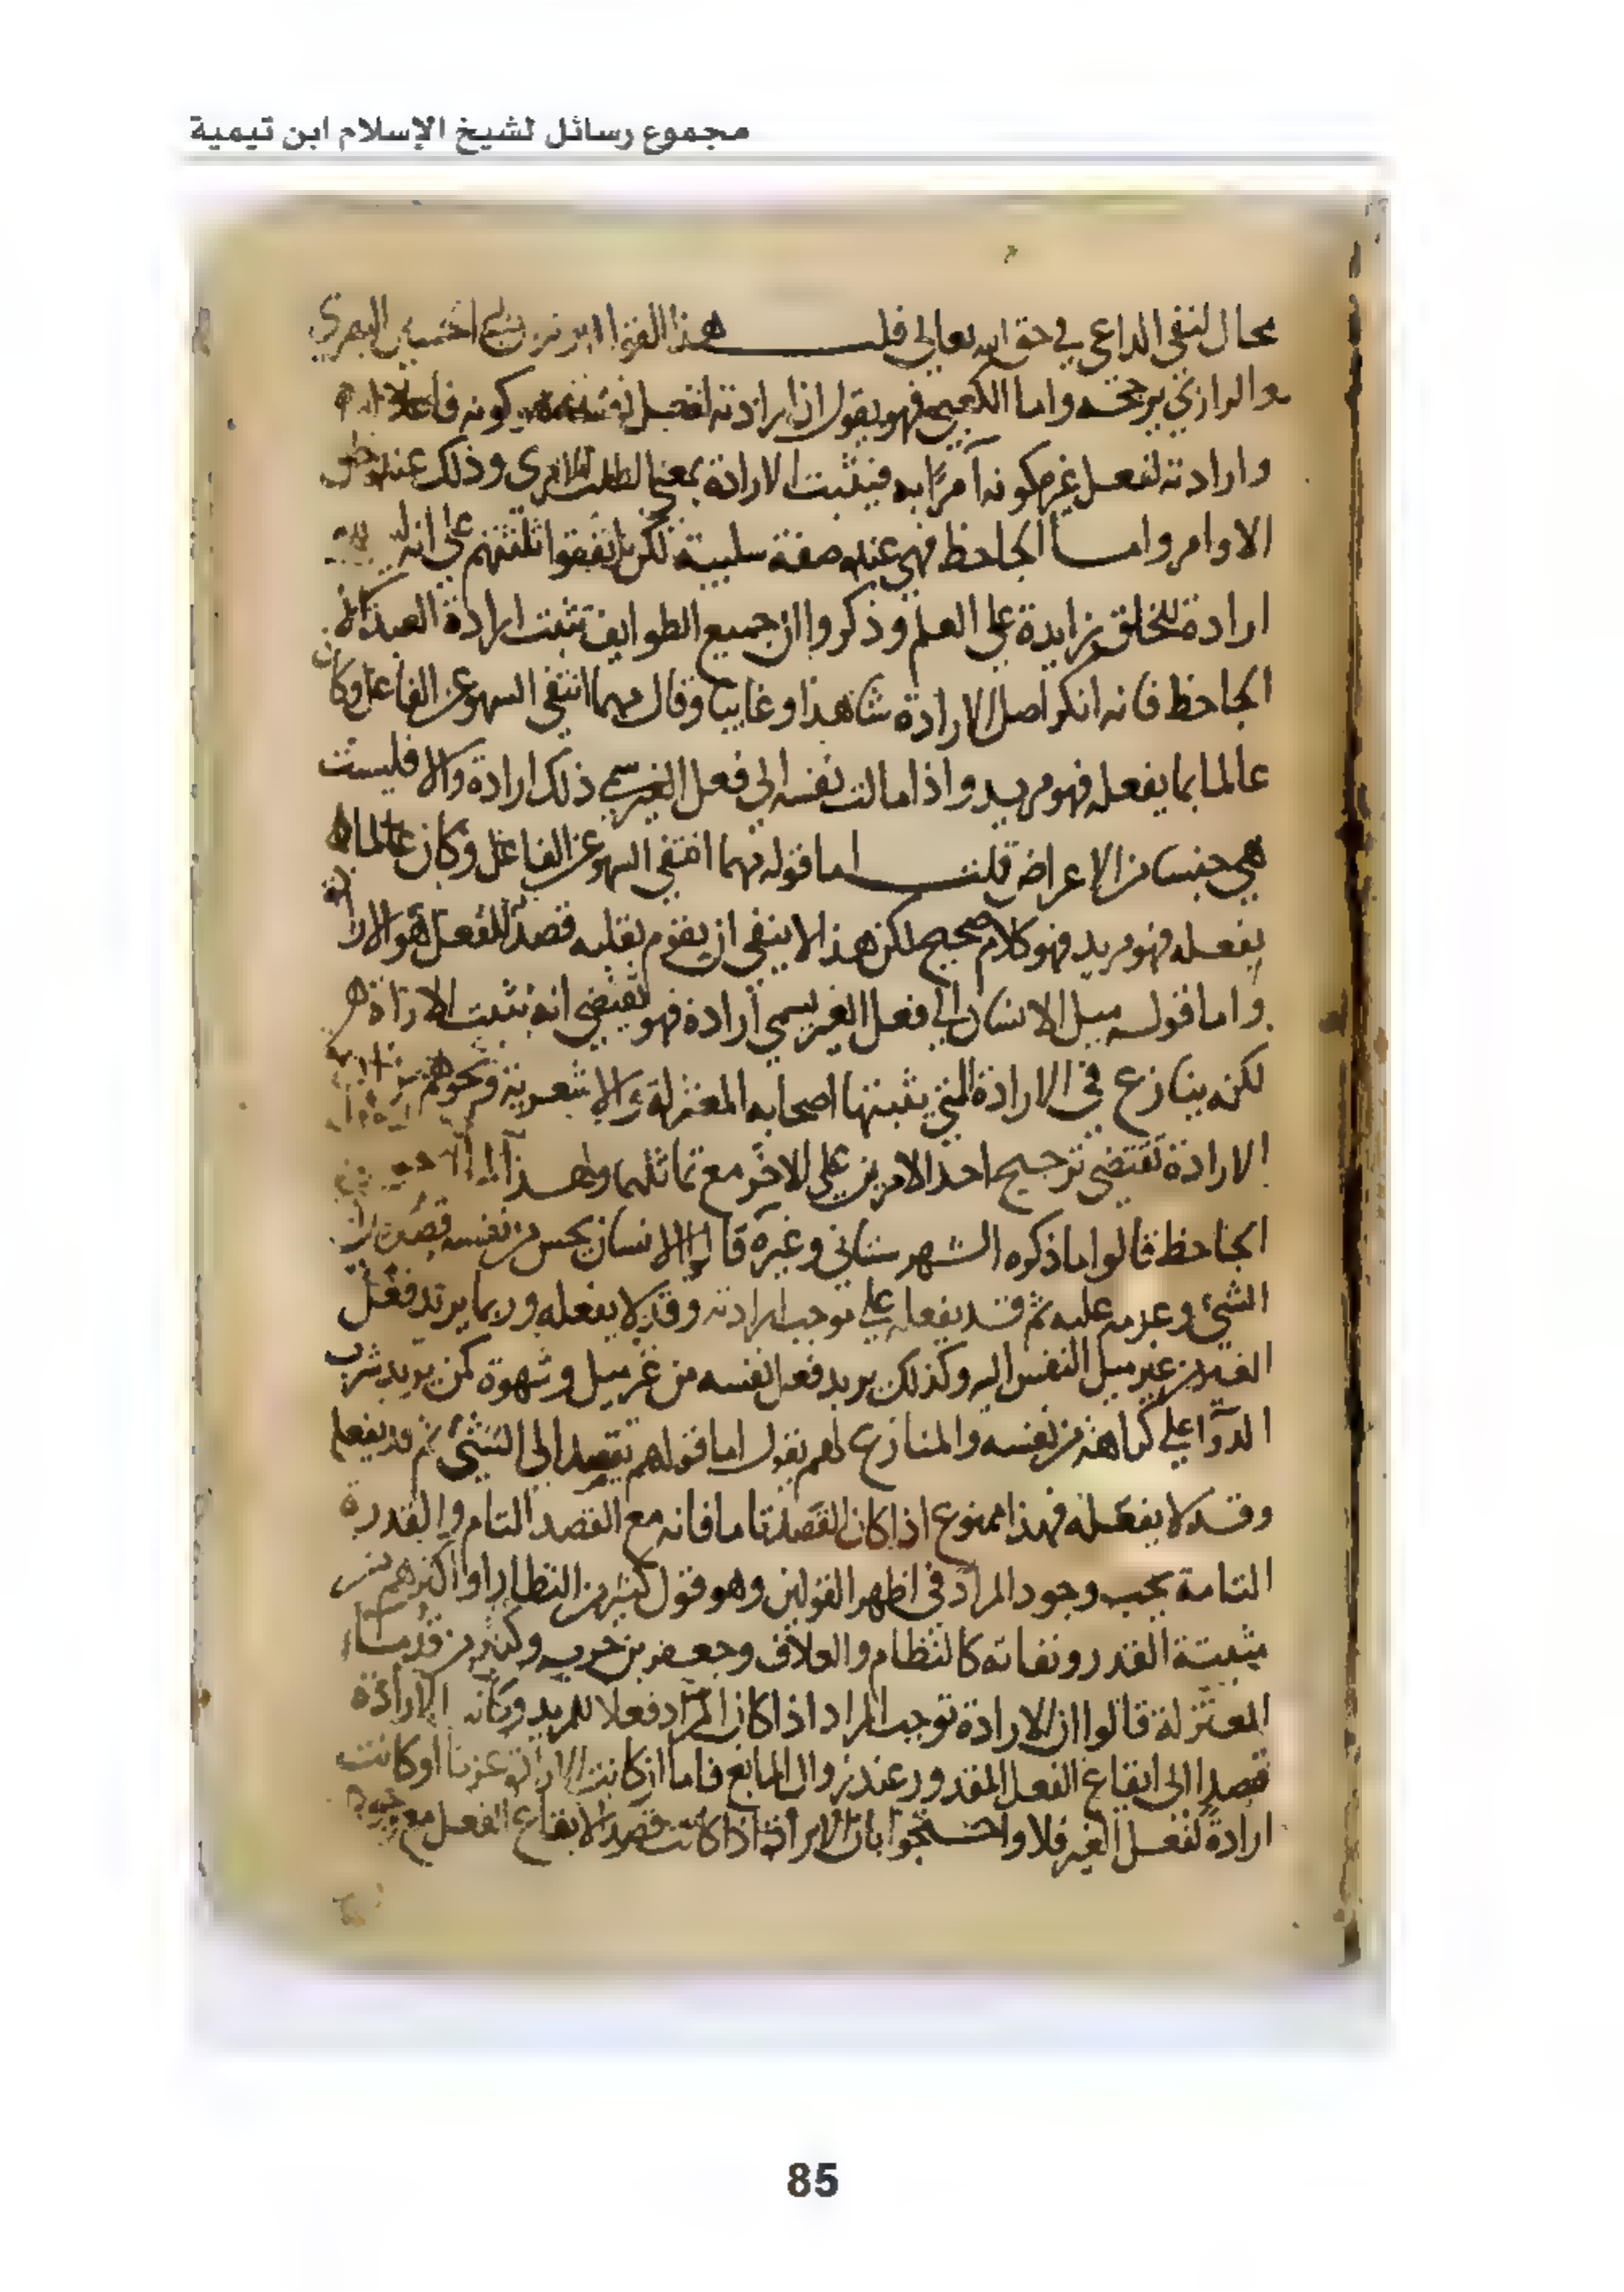 مجموع رسائل لشيخ الإسلام ابن تيمية
محال لنفي الداعي في حق الله تعالى قلت هذا القول الحسين البصري
والرازي يرجحه واما الكعبي فهو يقول ان ارادته لفعل كونه فاعلا
وارادته لفعل غيره كونه آمرا به فيثبت الارادة بمعنى الطلب وذلك عنده
الاوامر واما الجاحظ فهي عنده صفة سلبية لكن اتفقوا ثلثتهم على انه
ارادة للخلق زايدة على العلم وذكروا ان جميع الطوايف تثبت ارادة العبد الا
الجاحظ فانه انكر اصل الارادة شاهدا وغايبا وقال مهما انتفى السهو عن الفاعل وكان
عالما بما يفعله فهو مريد واذا مالت نفسه الى فعل الغير سمي ذلك ارادة والا فليست
هي جنسا من الاعراض قلت اما قوله مهما انتفى السهو عن الفاعل وكان عالما
يفعله فهو مريد فهو كلام صحيح لكن هذا لا ينفي ان يقوم بقلبه قصد للفعل هو
واما قوله ميل الانسان الى فعل الغير يسمى ارادة فهو يقتضي انه يثبت الارادة
لكنه ينازع في الارادة التي يثبتها اصحابه المعتزلة والاشعرية ونحوهم
الارادة تقتضي ترجيح احد الامرين على الاخر مع تماثلهما
الجاحظ قالوا ما ذكره الشهرستاني وغيره قالوا الانسان يحس من نفسه
الشيء وعزمه عليه ثم قد يفعله على توجب ارادته وقد لا يفعله وربما يريد فعل
الغير من غير ميل النفس اليه وكذلك يريد فعل نفسه من غير ميل وشهوة كمن يريد شرب
الدوا على كراهة من نفسه والمنازع لهم يقول اما قولهم يقصد الى الشيء ثم قد يفعله
وقد لا يفعله فهذا ممنوع اذا كان القصد تاما فانه مع القصد التام والقدرة
التامة يجب وجود المراد في اظهر القولين وهو قول كثير من النظار او اكثرهم من
مثبتة القدر ونفاته كالنظام والعلاف وجعفر بن حرب وكثير من قدماء
المعتزلة قالوا ان الارادة توجب المراد اذا كان المراد فعلا للمريد وكانت الارادة
قصدا الى ايقاع الفعل المقدور عند زوال المانع فاما ان كانت الارادة عزما او كانت
ارادة لفعل الغير فلا واحتجوا بان الارادة اذا كانت قصدا لايقاع الفعل مع
85